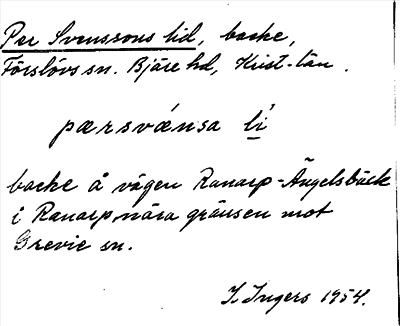 Per Svenssons lid, backe,
Förslövs sn. Bjäre hd, Krist-län.
pærsvǽnsa lì
backe å vägen Ranarp-Ängelsbäck
i Ranarp, nära gränsen mot
Grevie sn.
I. Ingers 1954.